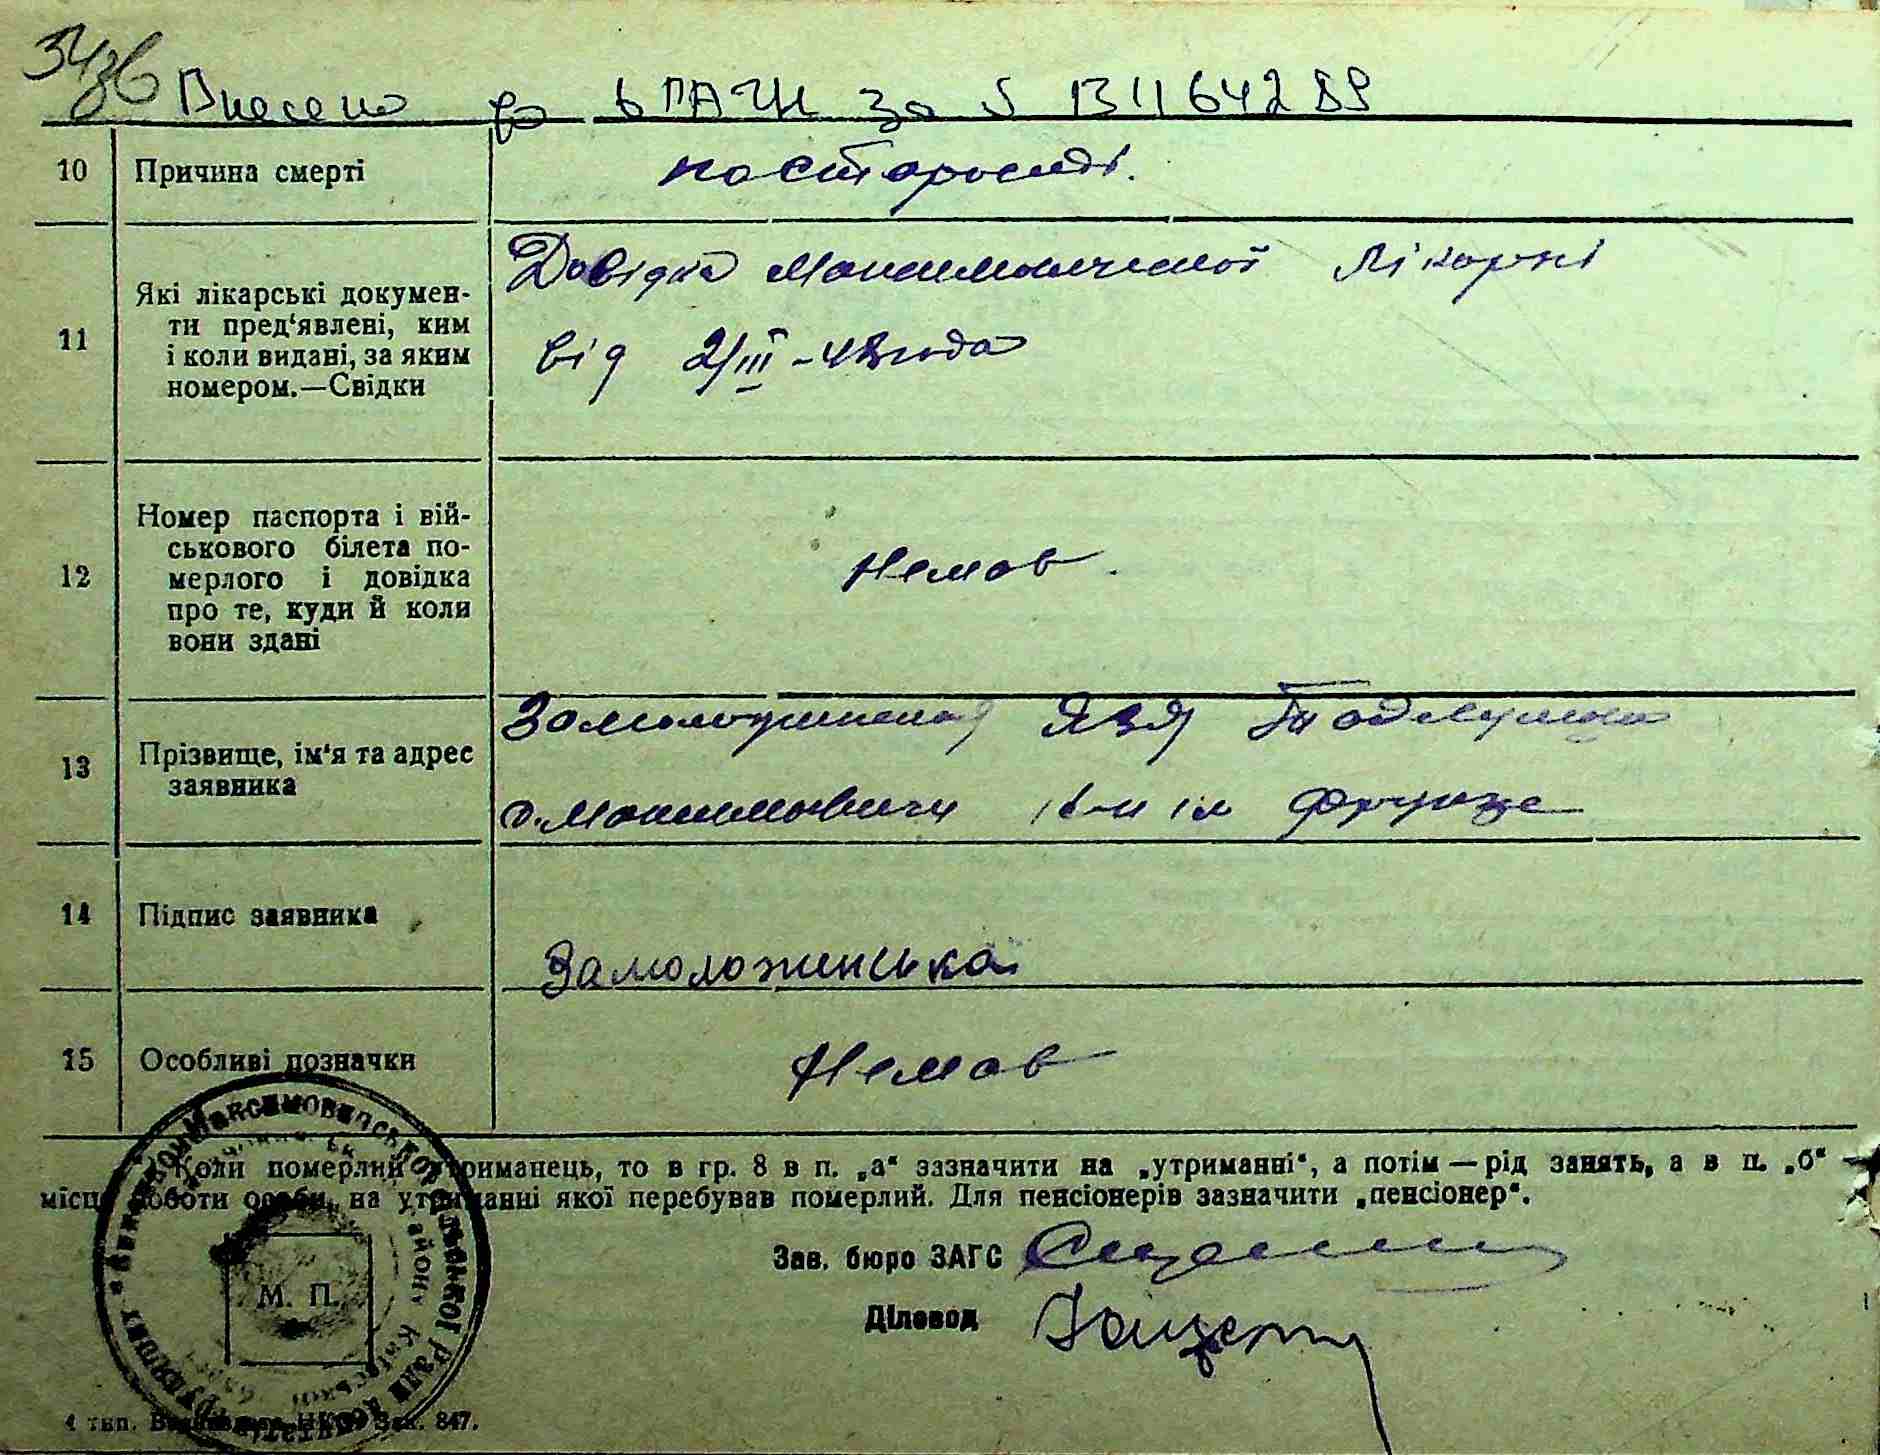 Внесено до ДРАЦС за № 131164289
10 Причина смерті
по старості.
11 Які лікарські докумен-
ти пред‘явлені, ким
і коли видані, за яким
номером.—Свідки
Довідка Максимовичської лікарні
від 2/III-43 года
12 Номер паспорта і вій-
ськового білета по-
мерлого і довідка
про те, куди й коли
вони здані
Немає.
13 Прізвище, ім‘я та адрес
заявника
Язя
с. Максимовичи к-п ім Фрунзе
14 Підпис заявника
Замоложинська
15 Особливі позначки
Немає
Коли померлий утриманець, то в гр. 8 в п. „а“ зазначити на „утриманні“, а потім — рід занять, а в п. „б“
місце роботи особи, на утриманні якої перебував померлий. Для пенсіонерів зазначити „пенсіонер“.
Зав. бюро ЗАГС
Діловод
М. П.
Максимовицької сільської Ради
району Київської
4 тип. Зак. 847.